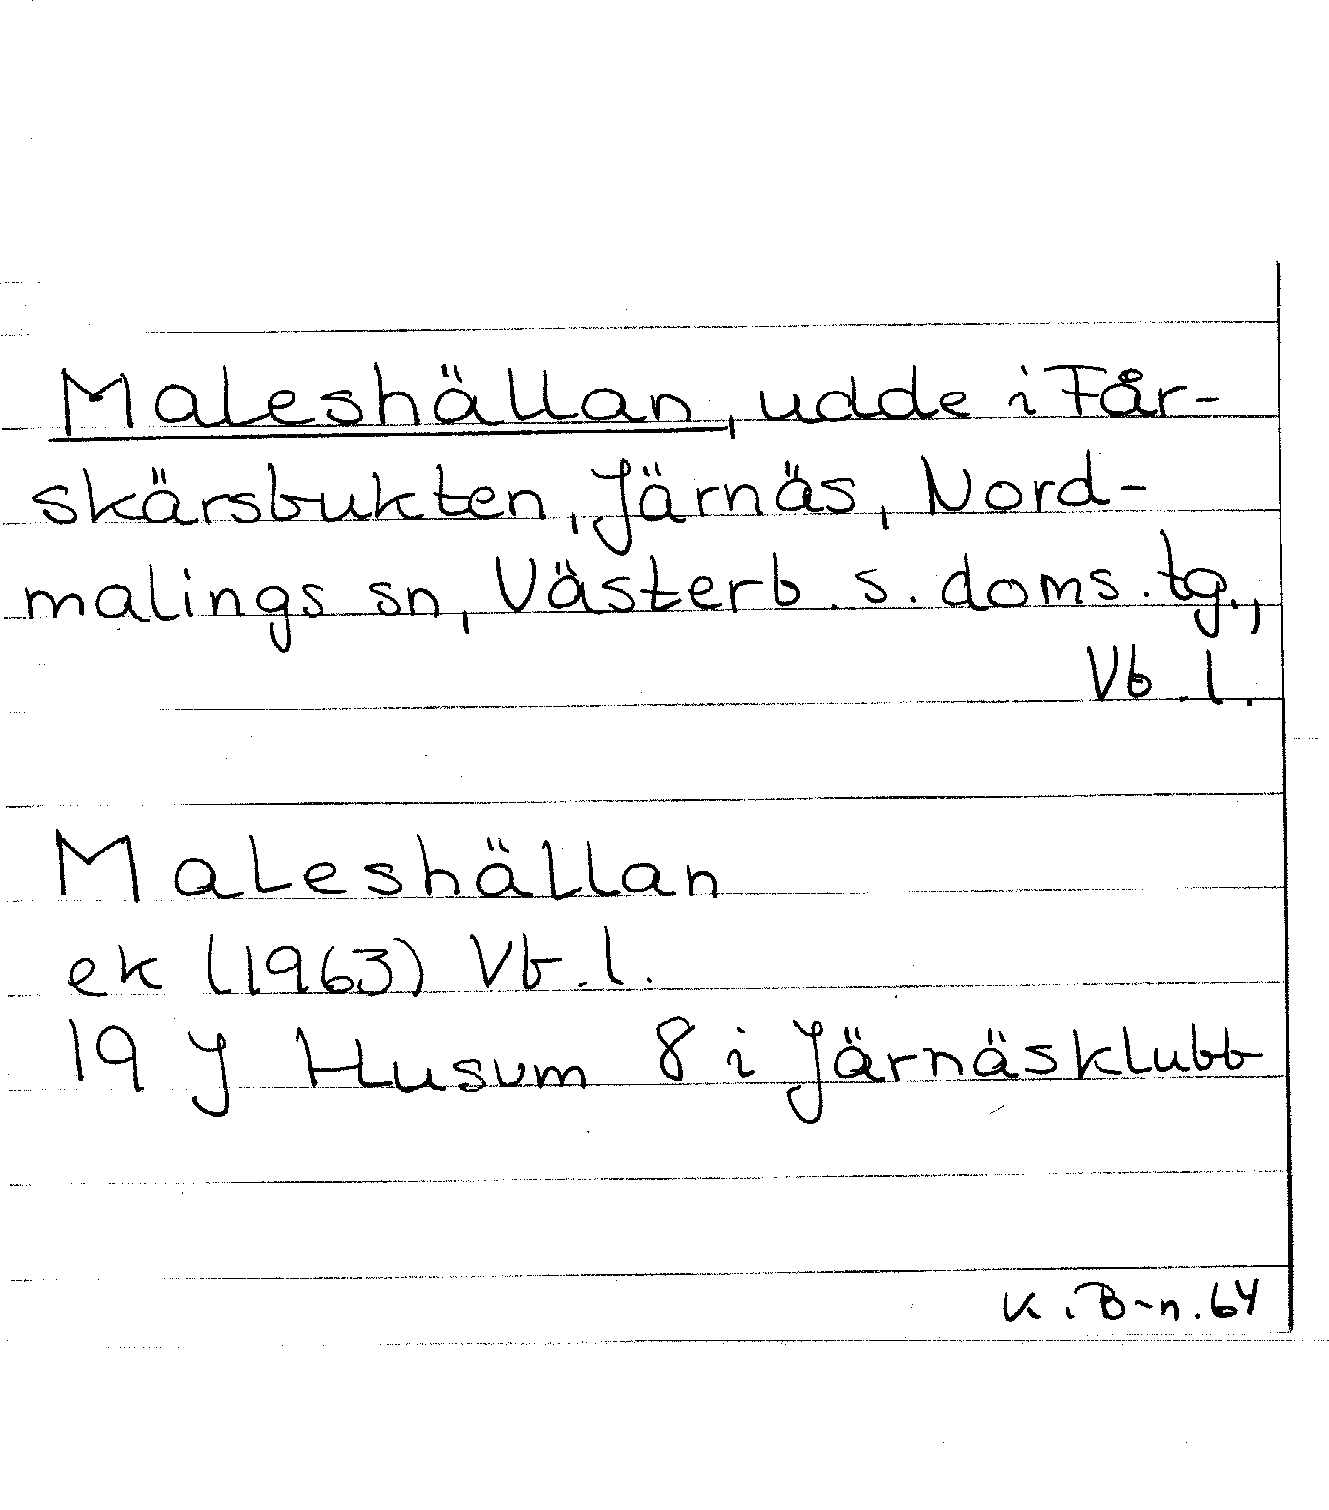 Maleshällan, udde i Får-
skärsbukten, Järnäs, Nord-
malings sn, Västerb. s. doms. tg.,
Vb. l.
Maleshällan
ek (1963) Vb. l.
19 J Husum 8 i Järnäsklubb
K. B-n. 64